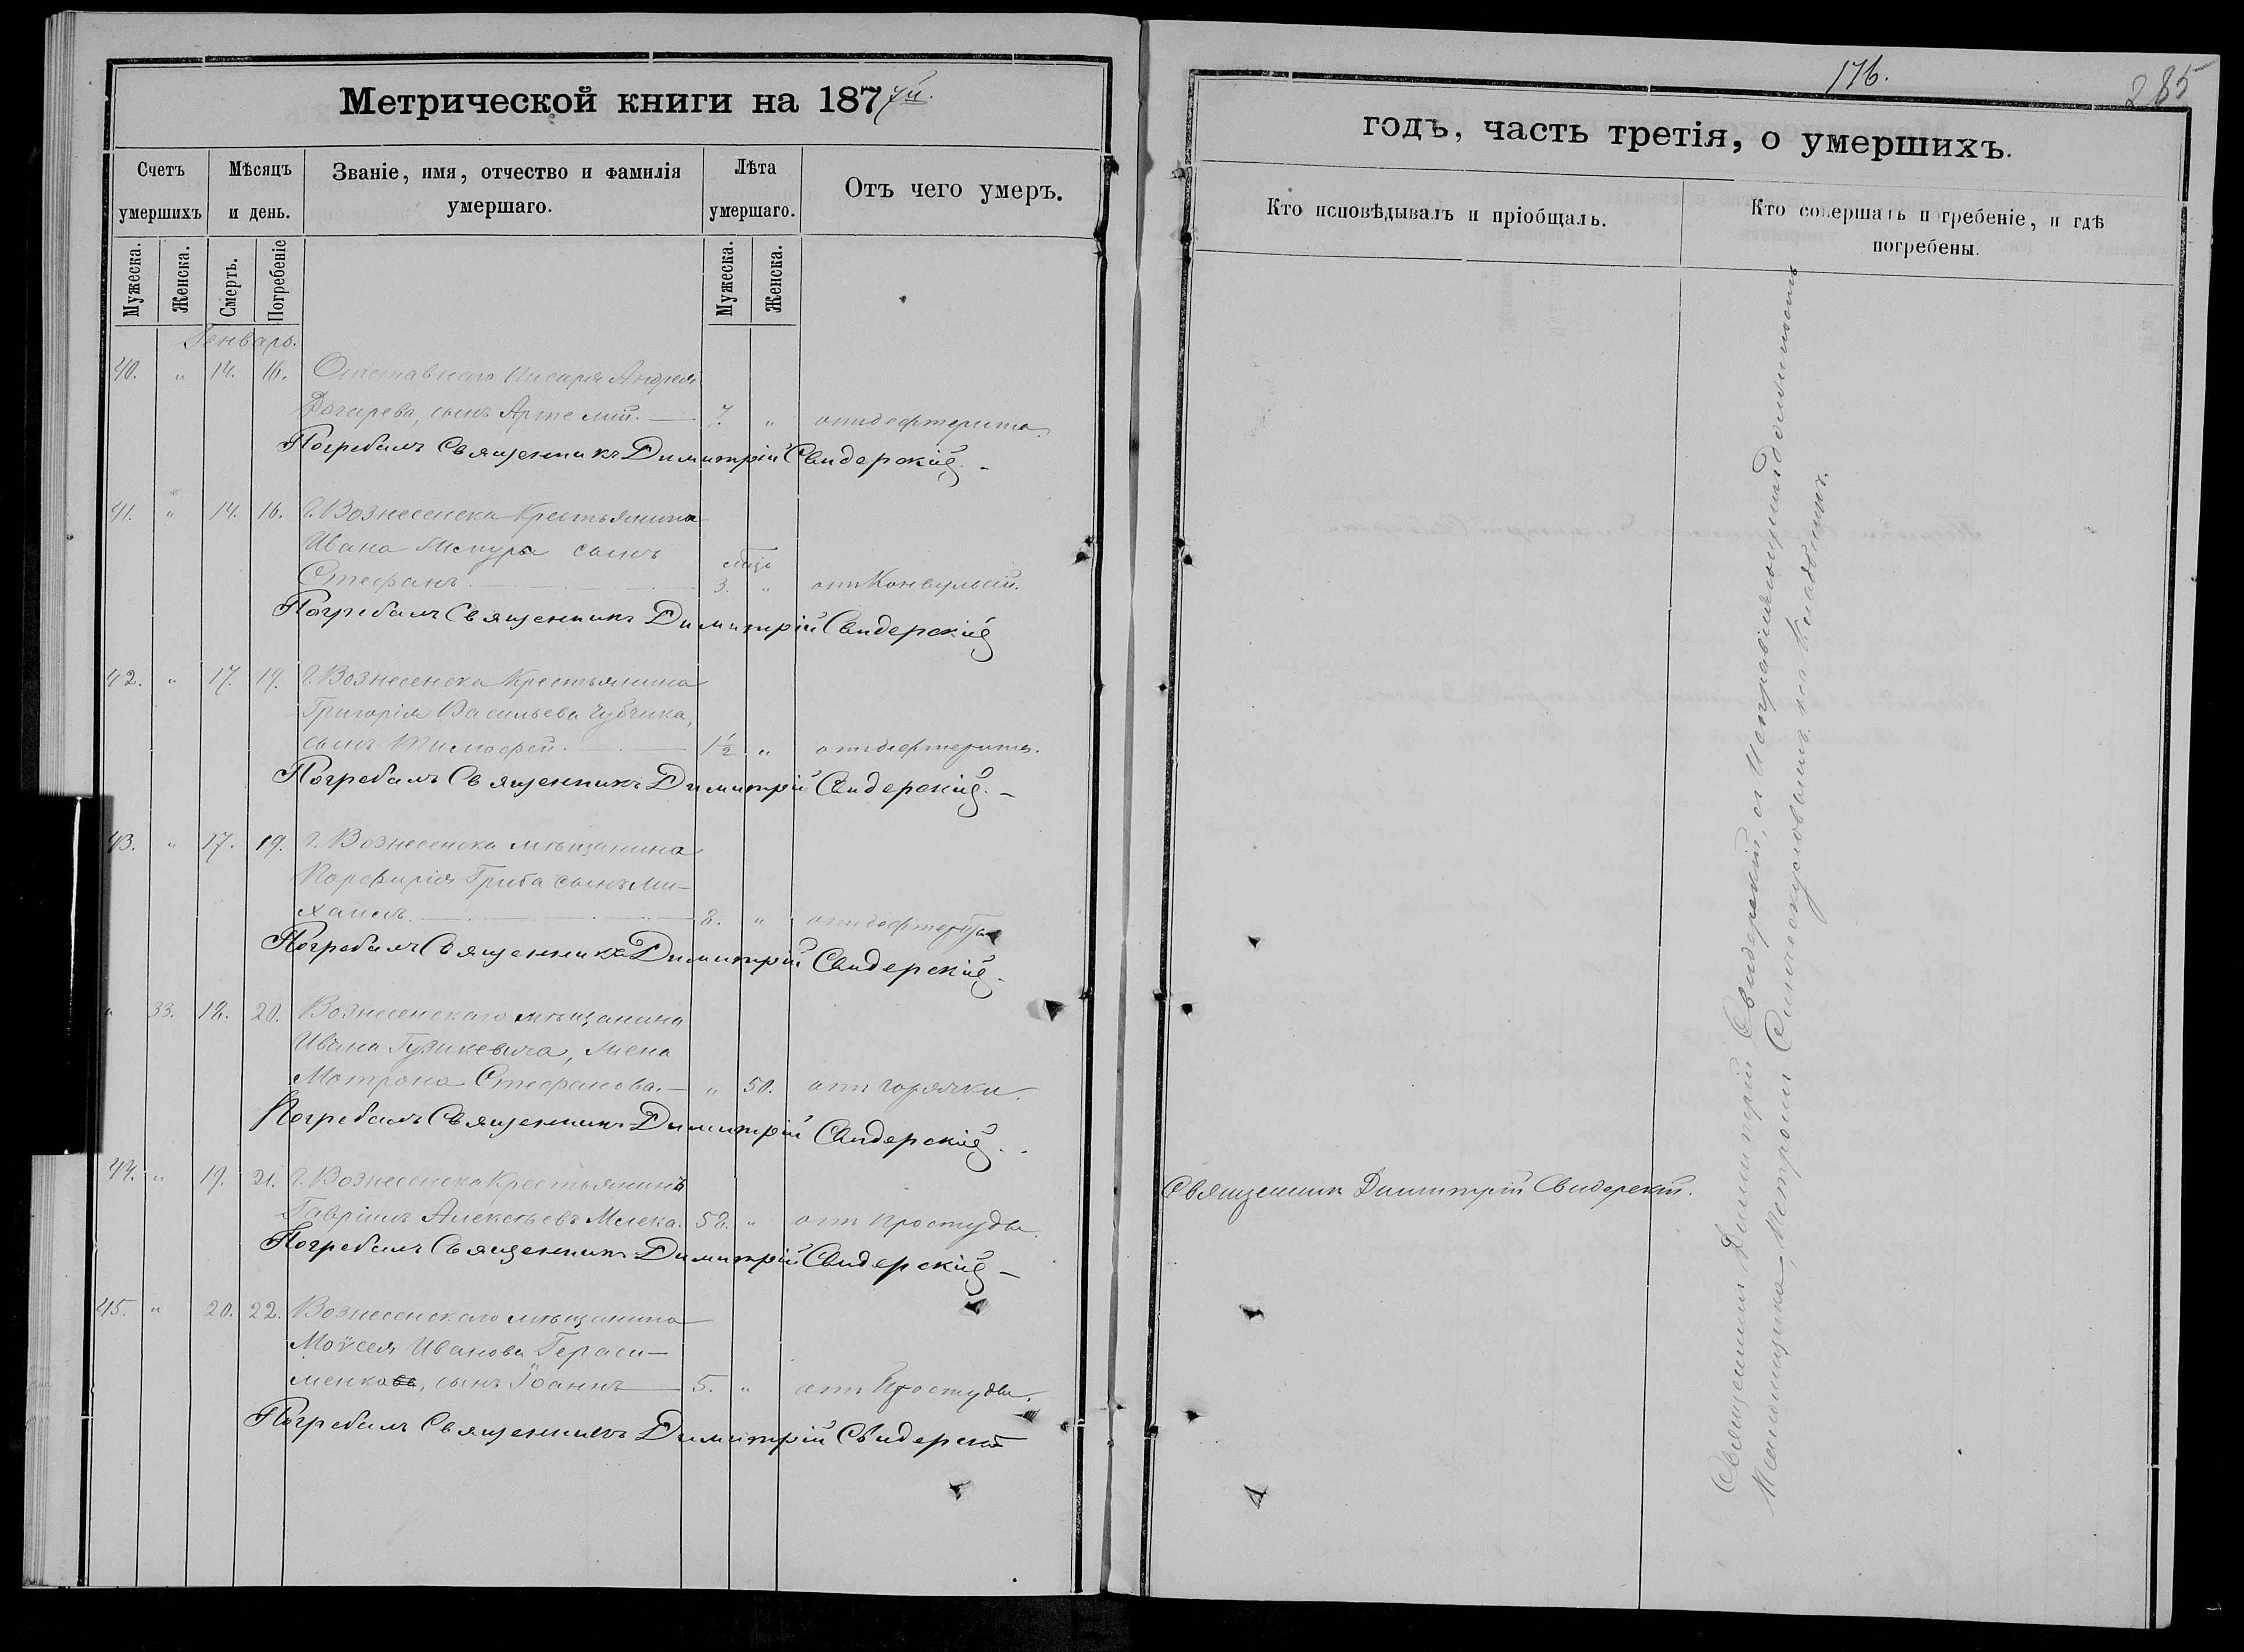 Метрической книги на 1877й.
Счетъ умершихъ
Мѣсяцъ и день.
Званіе, имя, отчество и фамилія умершаго.
Лѣта умершаго.
Отъ чего умеръ.
Мужеска.
Женска.
Смерть.
Погребеніе
Мужеска.
Женска.
Генварь.
40. " 14. 16. Отставнаго писаря Андрея
сынъ Артемій. — 7. " отъ дефтерита.
Погребалъ Священникъ Димитрій Свидерскій. -
41. " 14. 16. г. Вознесенска Крестьянина
Ивана сынъ
Стефанъ. 3. " отъ Конвульсій.
Погребалъ Священникъ Димитрій Свидерскій
42. " 17. 19. г. Вознесенска Крестьянина
Григорія Васильева Чубчика,
сынъ Тимофей. 1½ " отъ дефтерита.
Погребалъ Священникъ Димитрій Свидерскій. -
43. " 17. 19. г. Вознесенска мѣщанина
Порфирія Гриба сынъ Ми-
хаилъ. 2. " отъ дефтерита
Погребалъ Священникъ Димитрій Свидерскій.
" 33. 18. 20. Вознесенскаго мѣщанина
Ивана Гузикевича, жена
Мотрона Стефанова. — " 50. отъ горячки.
Погребалъ Священникъ Димитрій Свидерскій. .
44. " 19. 21. г. Вознесенска Крестьянинъ
Гавріилъ Алексѣевъ 58. " отъ простуды.
Погребалъ Священникъ Димитрій Свидерскій -
45. " 20. 22. Вознесенскаго мѣщанина
Моѵсея Иванова Гераси-
менко, сынъ Іоаннъ 5. " отъ Простуды.
Погребалъ Священникъ Димитрій Свидерскій
176.
285
годъ, часть третія, о умершихъ.
Кто исповѣдывалъ и пріобщалъ.
Кто совершалъ погребеніе, и гдѣ погребены.
Священникъ Димитрій Свидерскій.
Священникъ Димитрій Свидерскій, съ Исправляющимъ должность
Псаломщика, Петромъ на Кладбищѣ.